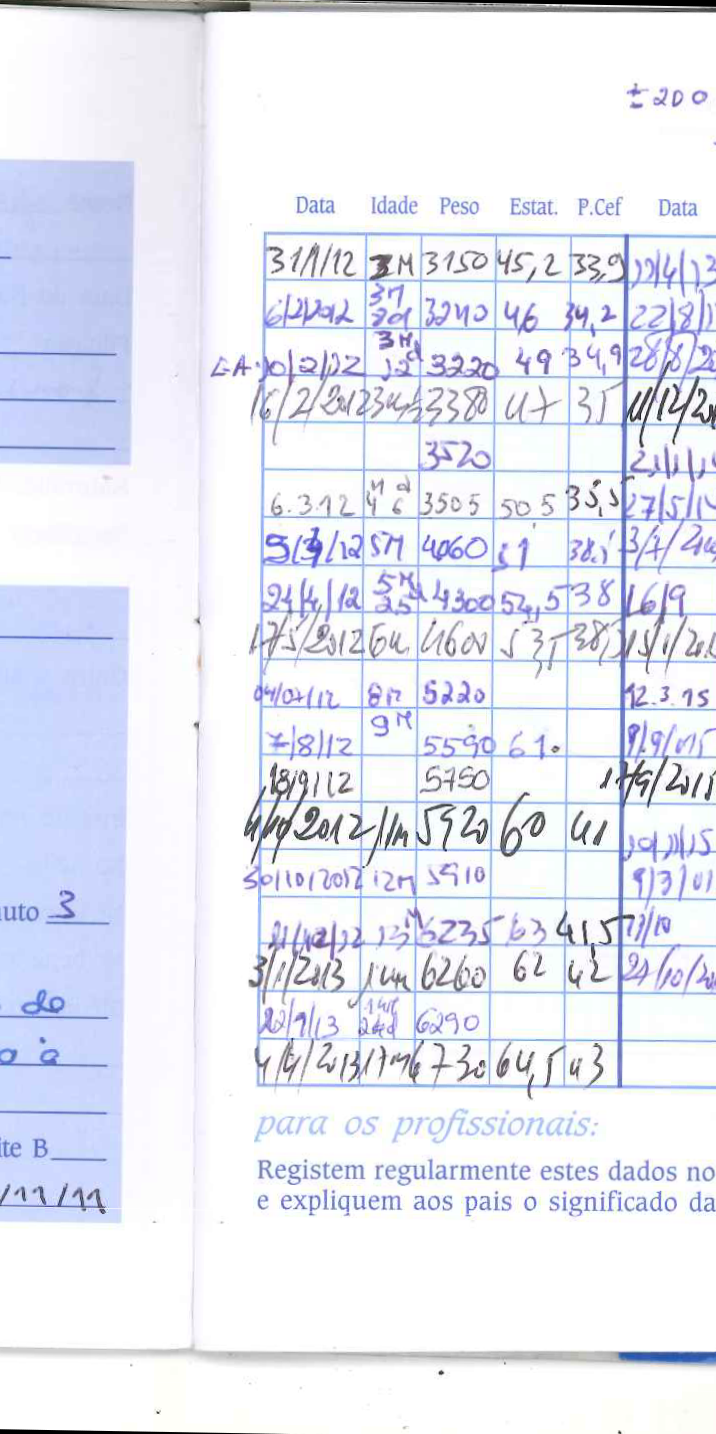 ± 200
Data Idade Peso Estat. P.Cef Data
31/1/12 3M 3150 45,2 33,9
6/2/2012 3M 3240 46 34,2 22/8/
10/2/12 3M 12d 3220 49 34,9 28/8/
16/2/2012 3380 47 35 11/12/
3520
6.3.12 4M 6d 3505 505 35,5 27/5/
/12 5M 4060 51 38.
24/4/12 5M 25d 4300 54,5 38 16/9
17/5/2012 6m 4600 53,
04/07/12 8M 5220 12.3.15
7/8/12 9M 5590 61. 9/9/015
18/9/12 5750 17/9/2015
2012 11m 5920 60 41 10/11/15
30/10/2012 12M 5910 9/3/01
/12/12 13M 6235 63 41,5
3/1/2013 6260 62 42 27/10/
22/1/13 6290
4/4/2013 17m 6730 64,5 43
uto 3
do
o à
ite B
/11/11
para os profissionais:
Registem regularmente estes dados no
e expliquem aos pais o significado da